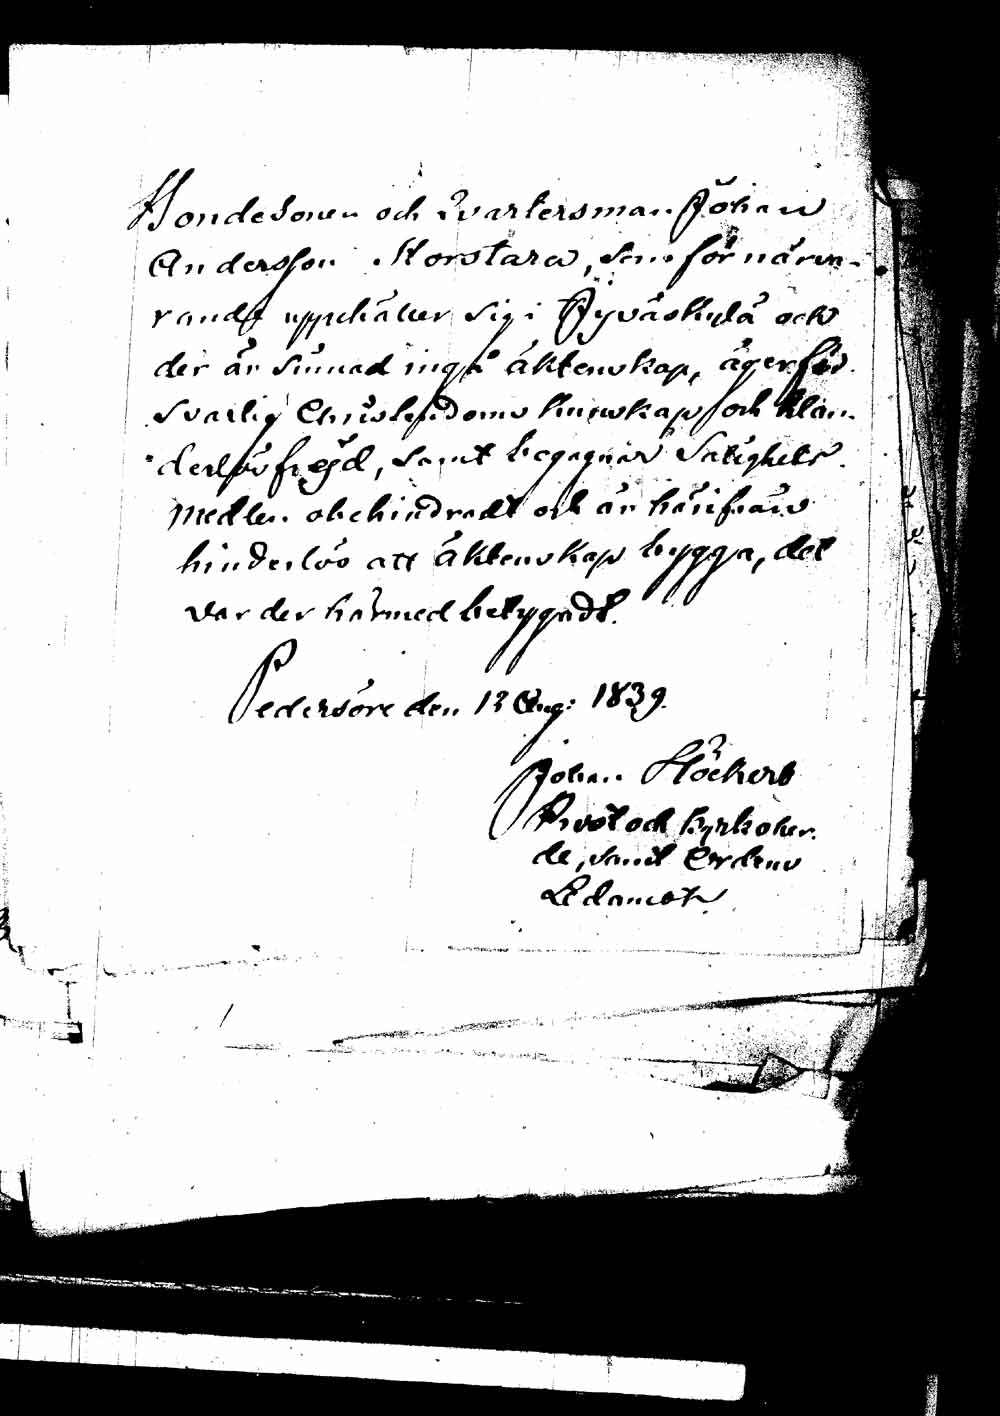 Bondesonen och Qvartersman Johan
Andersson Storstara, som för närva-
rande uppehåller sig i Jyväskylä och
der är sinnad ingå äktenskap, äger för-
svarlig Christendoms kunskap och klan-
derlös frejd, samt begagnar Salighets
medlen obehindradt och är härifrån
hinderlös att äktenskap bygga, det
varder härmed betygadt.
Pedersöre den 12 Aug: 1839.
Johan Höckert
Prost och Kyrkoher-
de, samt Ordens
Ledamot.